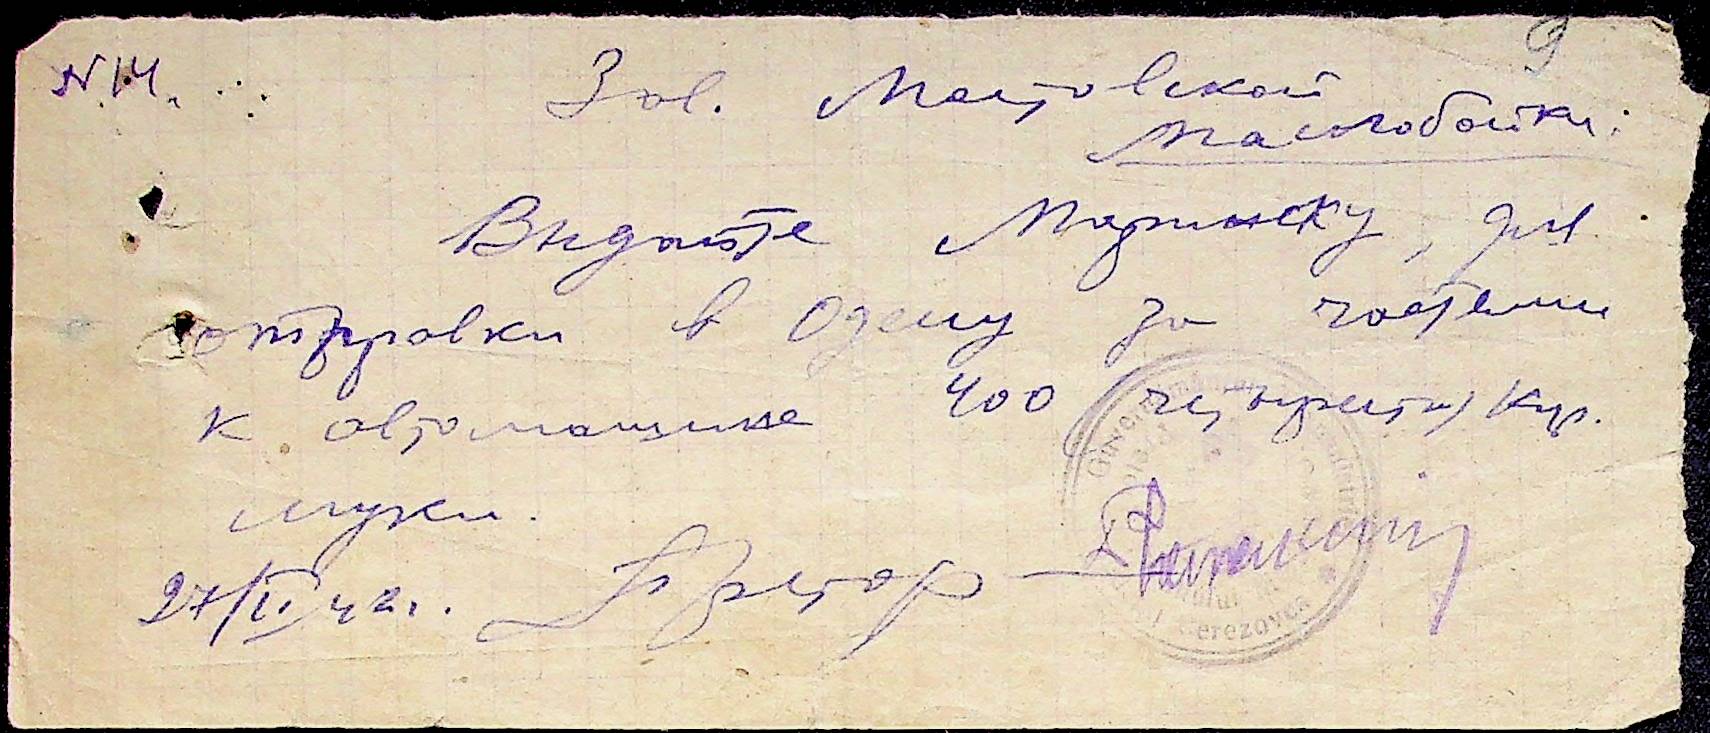 9
N 14.
Зав. Мостовской
маслобойки:
Выдайте Маринску, для
отправки в Одессу за частями
к автомашине 400 (четыреста) кгр.
муки.
27/II 42 г. Претор
Berezovca